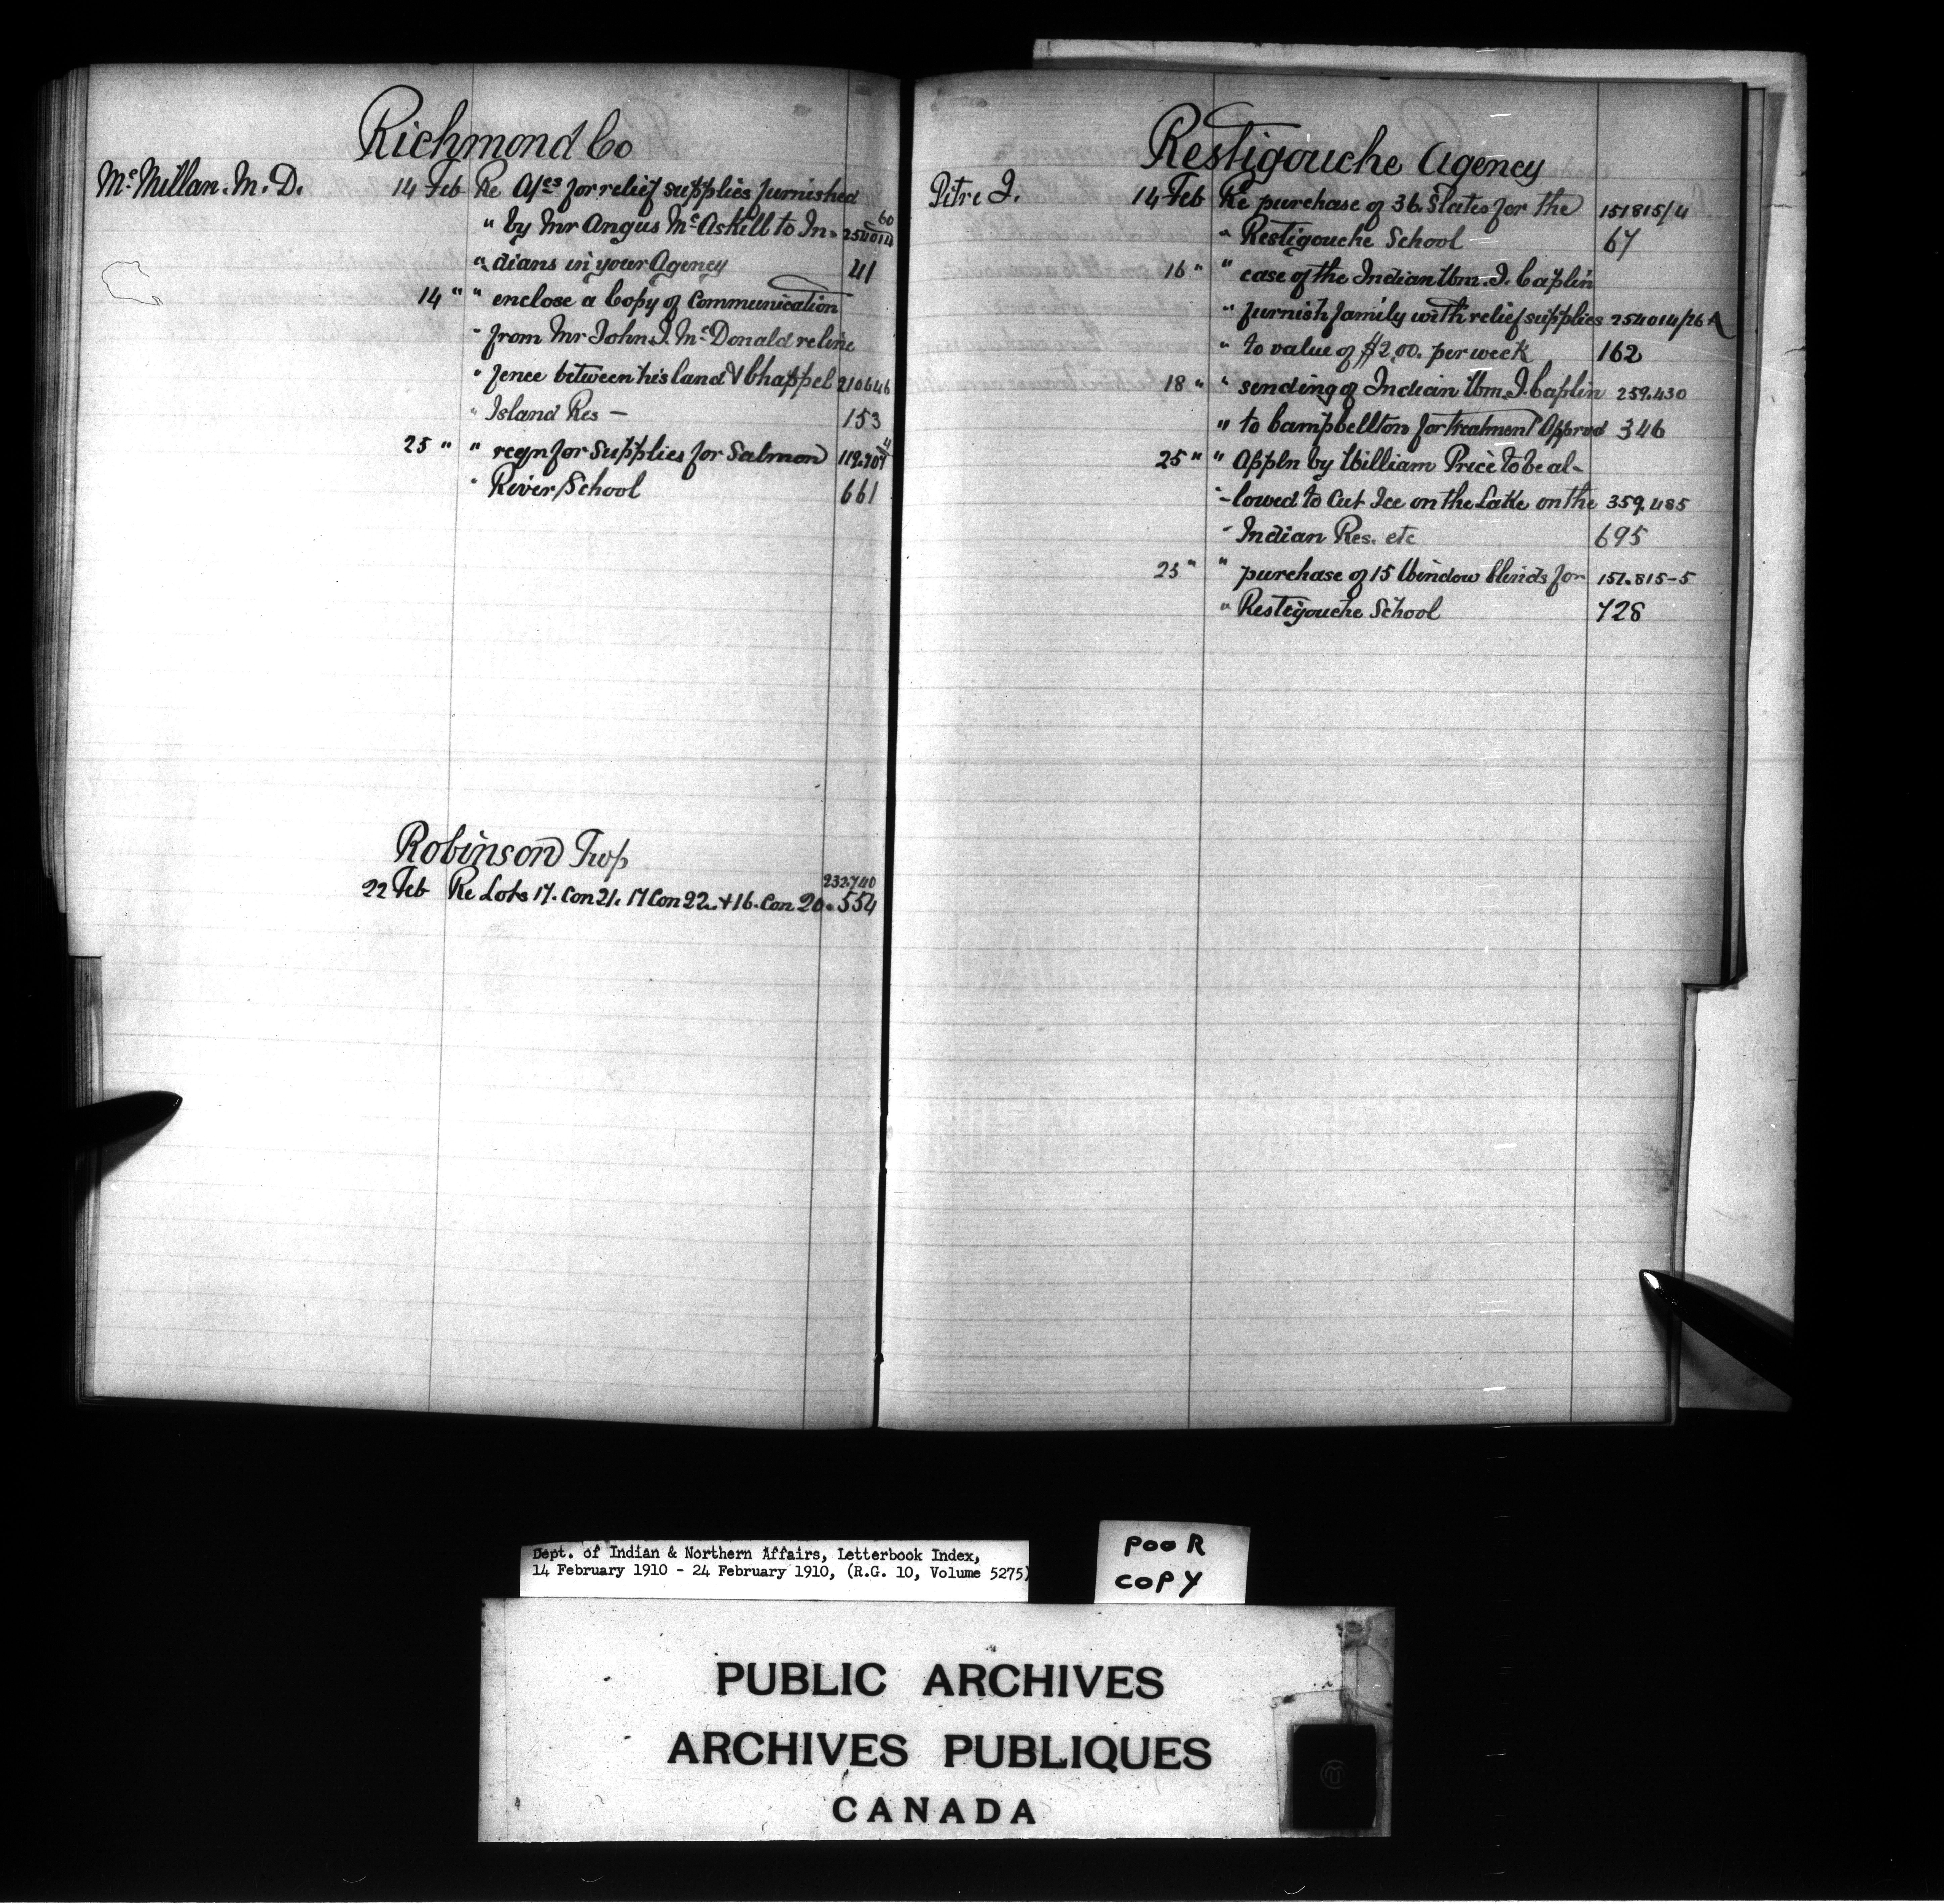 Richmond Co
McMillan. M. D. 14 Feb Re A/cs for relief supplies furnished
" by Mr Angus McAskill to In- 254014/60
" dians in your Agency 41
14 " " enclose a Copy of Communication
" from Mr John J. McDonald re line
" fence between his land & Chappel 210646
" Island Res — 153
25 " " reqn for Supplies for Salmon 119.707
" River School 661
Robinson Twp
232.740
22 Feb Re Lots 17. Con 21. 17 Con 22. + 16. Con 20. 554
Restigouche Agency
Pitre J. 14 Feb Re purchase of 36 Slates for the 151815/4
" Restigouche School 67
16 " " case of the Indian Wm. J. Caplin
" furnish family with relief supplies 254014/26 A
" to value of $2.00. per week 162
18 " " sending of Indian Wm. J. Caplin 259.430
" to Campbellton for treatment Approd 346
25 " " Appln by William Price to be al-
" -lowed to Cut Ice on the Lake on the 359.485
" Indian Res. etc 695
25 " " purchase of 15 Window blinds for 151.815-5
" Restigouche School 728
Dept. of Indian & Northern Affairs, Letterbook Index,
14 February 1910 - 24 February 1910, (R.G. 10, Volume 5275)
POOR
COPY
PUBLIC ARCHIVES
ARCHIVES PUBLIQUES
CANADA